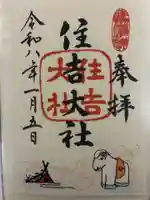 奉拝
住吉大社
住吉
大社
令和八年一月五日